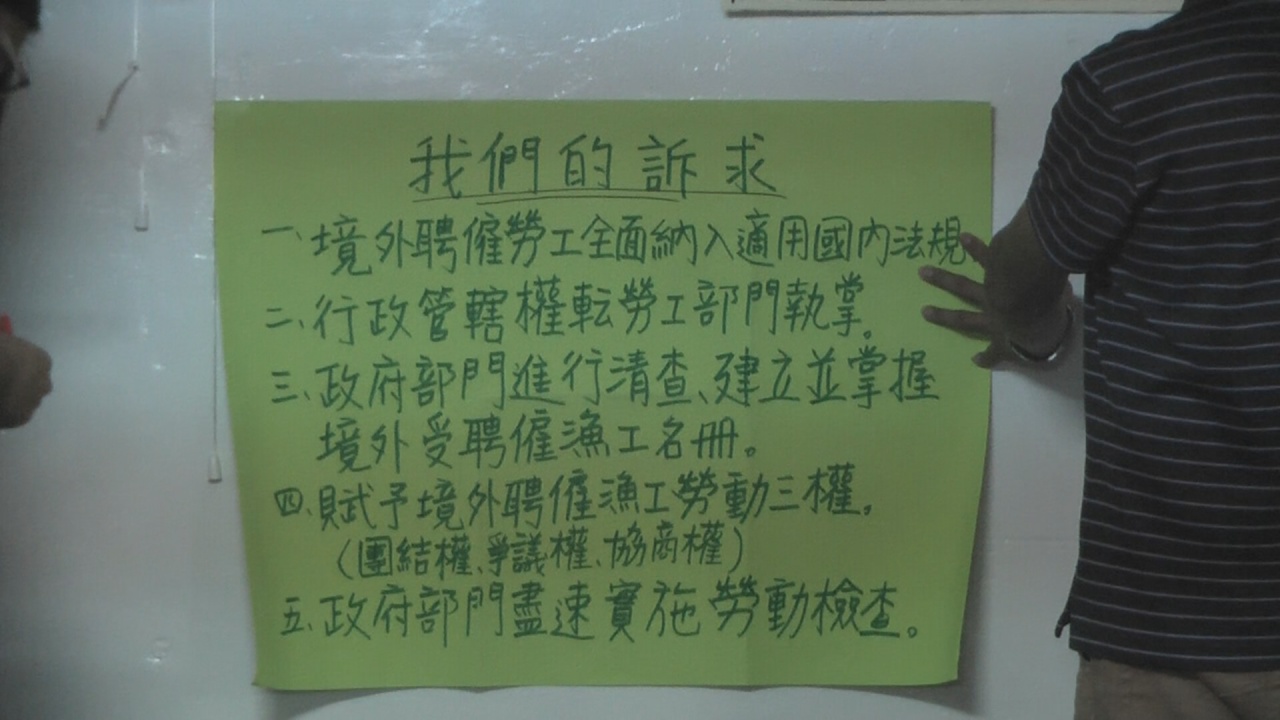 我們的訴求
一、境外聘僱勞工全面納入適用國內法規。
二、行政管轄權転勞工部門執掌。
三、政府部門進行清查、建立並掌握
境外受聘僱漁工名冊。
四、賦予境外聘僱漁工勞動三權。
(團結權、爭議權、協商權)
五、政府部門盡速實施勞動檢查。